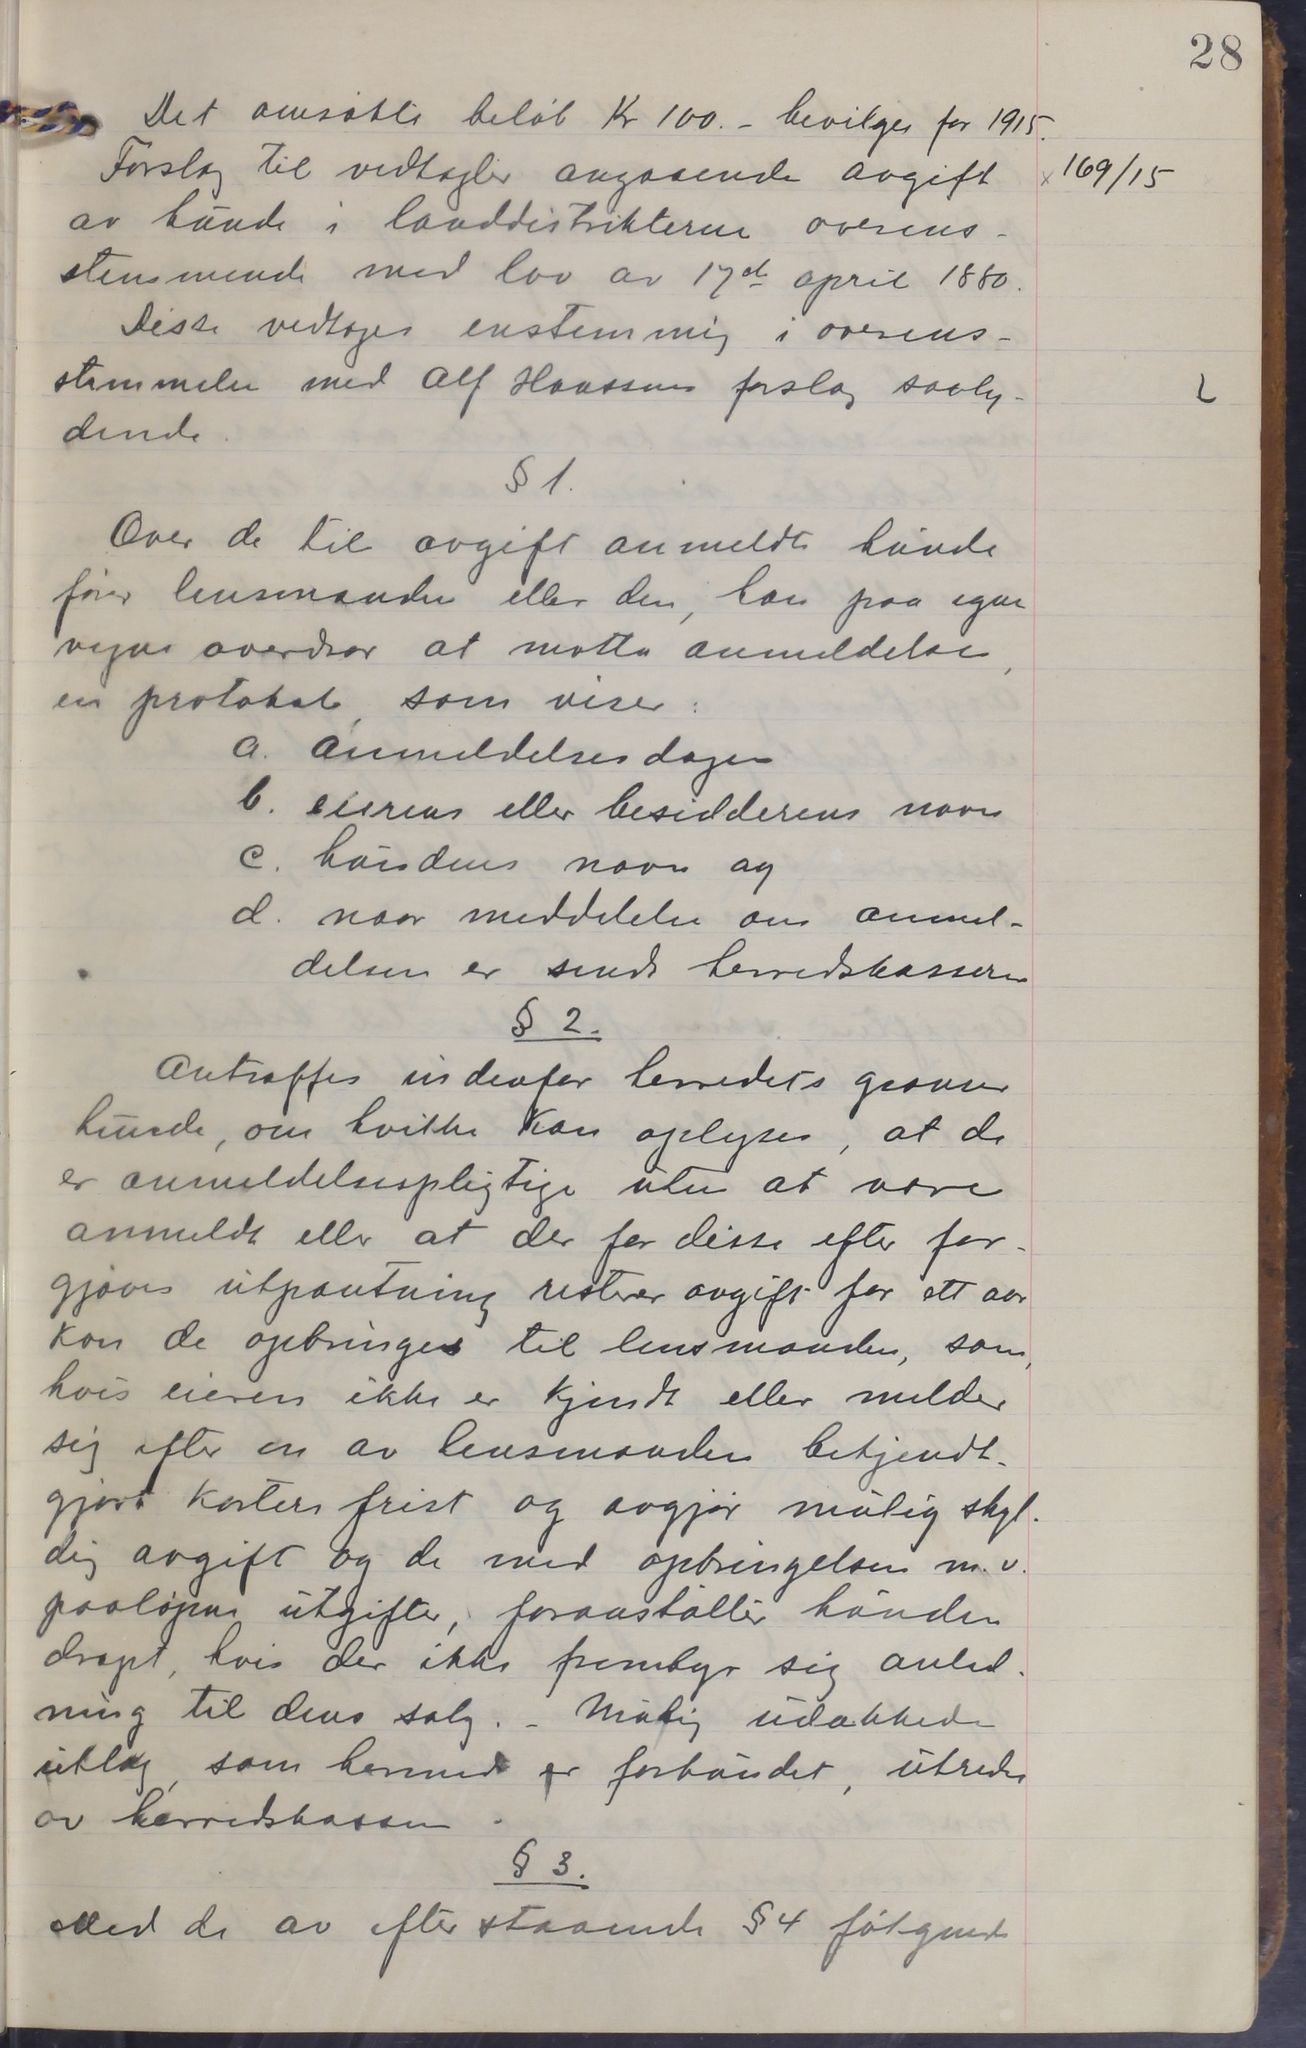 28
Det omsøkte beløb Kr 100.- bevilges for 1915.
Forslag til vedtægter angaaende avgift
x 169/15
av hunde i landdistrikterne overens-
stemmende med lov av 17de april 1880.
Disse vedtoges enstemmig i overens-
stemmelse med Alf Hanssens forslag saaly-
L
dende.
§ 1.
Over de til avgift anmeldte hunde
fører lensmanden eller den, han paa egne
vegne overdrar at motta anmeldelse,
en protokol, som viser:
a. anmeldelsesdagen
b. eierens eller besidderens navn
c. hundens navn og
d. naar meddelelse om anmel-
delsen er sendt herredskasseren
§ 2.
Antræffes indenfor herredets grænser
hunde, om hvilke kan oplyses, at de
er anmeldelsespligtige uten at være
anmeldt eller at der for disse efter for-
gjæves utpantning resterer avgift for ett aar
kan de opbringes til lensmanden, som,
hvis eieren ikke er kjendt eller melder
sig efter en av lensmanden bekjendt-
gjort kortere frist og avgjør mulig skyl-
dig avgift og de med opbringelsen m.v.
paaløpne utgifter, foranstalter hunden
dræpt, hvis der ikke frembyr sig anled-
ning til dens salg. - Mulig udækkede
utlæg, som hermed er forbundet, utredes
av herredskassen.
§ 3.
Med de av efterstaaende § 4 følgende